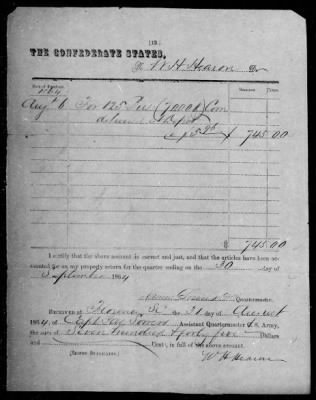 [12]
THE CONFEDERATE STATES,
To W H Hearon Dr
DOLLARS. CENTS.
Date of Purchase.
1864
Aug 6 For 125 (7000) Corn
delivered Depot
$ 745.00
$ 745.00
I certify that the above account is correct and just, and that the articles have been ac-
counted for on my property return for the quarter ending on the 30 day of
September 1864
Quartermaster.
RECEIVED at this 30 day of August
1864, of Capt Assistant Quartermaster C. S. Army,
the sum of Seven hundred & forty five Dollars
and Cents, in full of the above account.
(SIGNED DUPLICATES.) W H Hearon